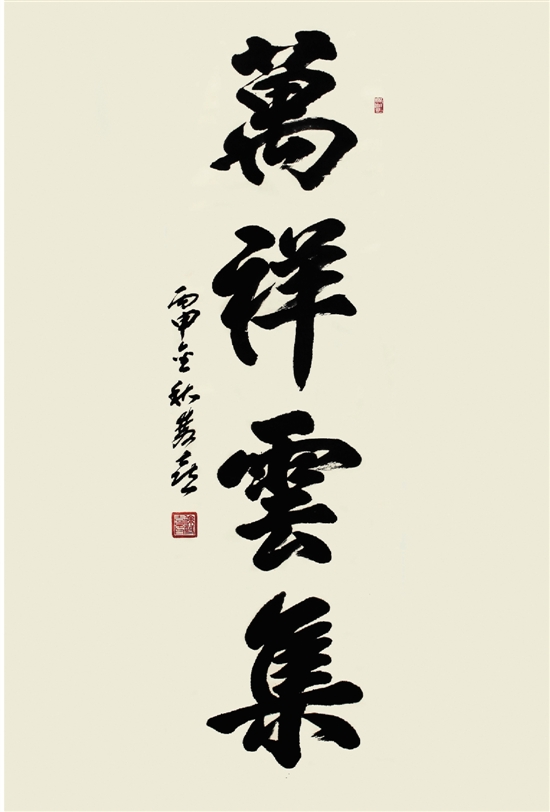 萬祥雲集
丙申金秋